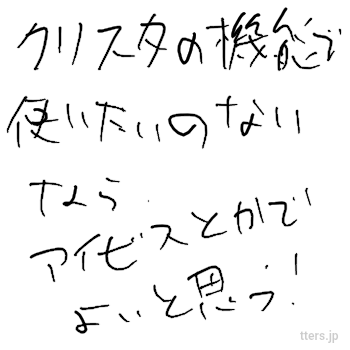 クリスタの機能で
使いたいのない
なら
アイビスとかで
よいと思う!
tters.jp